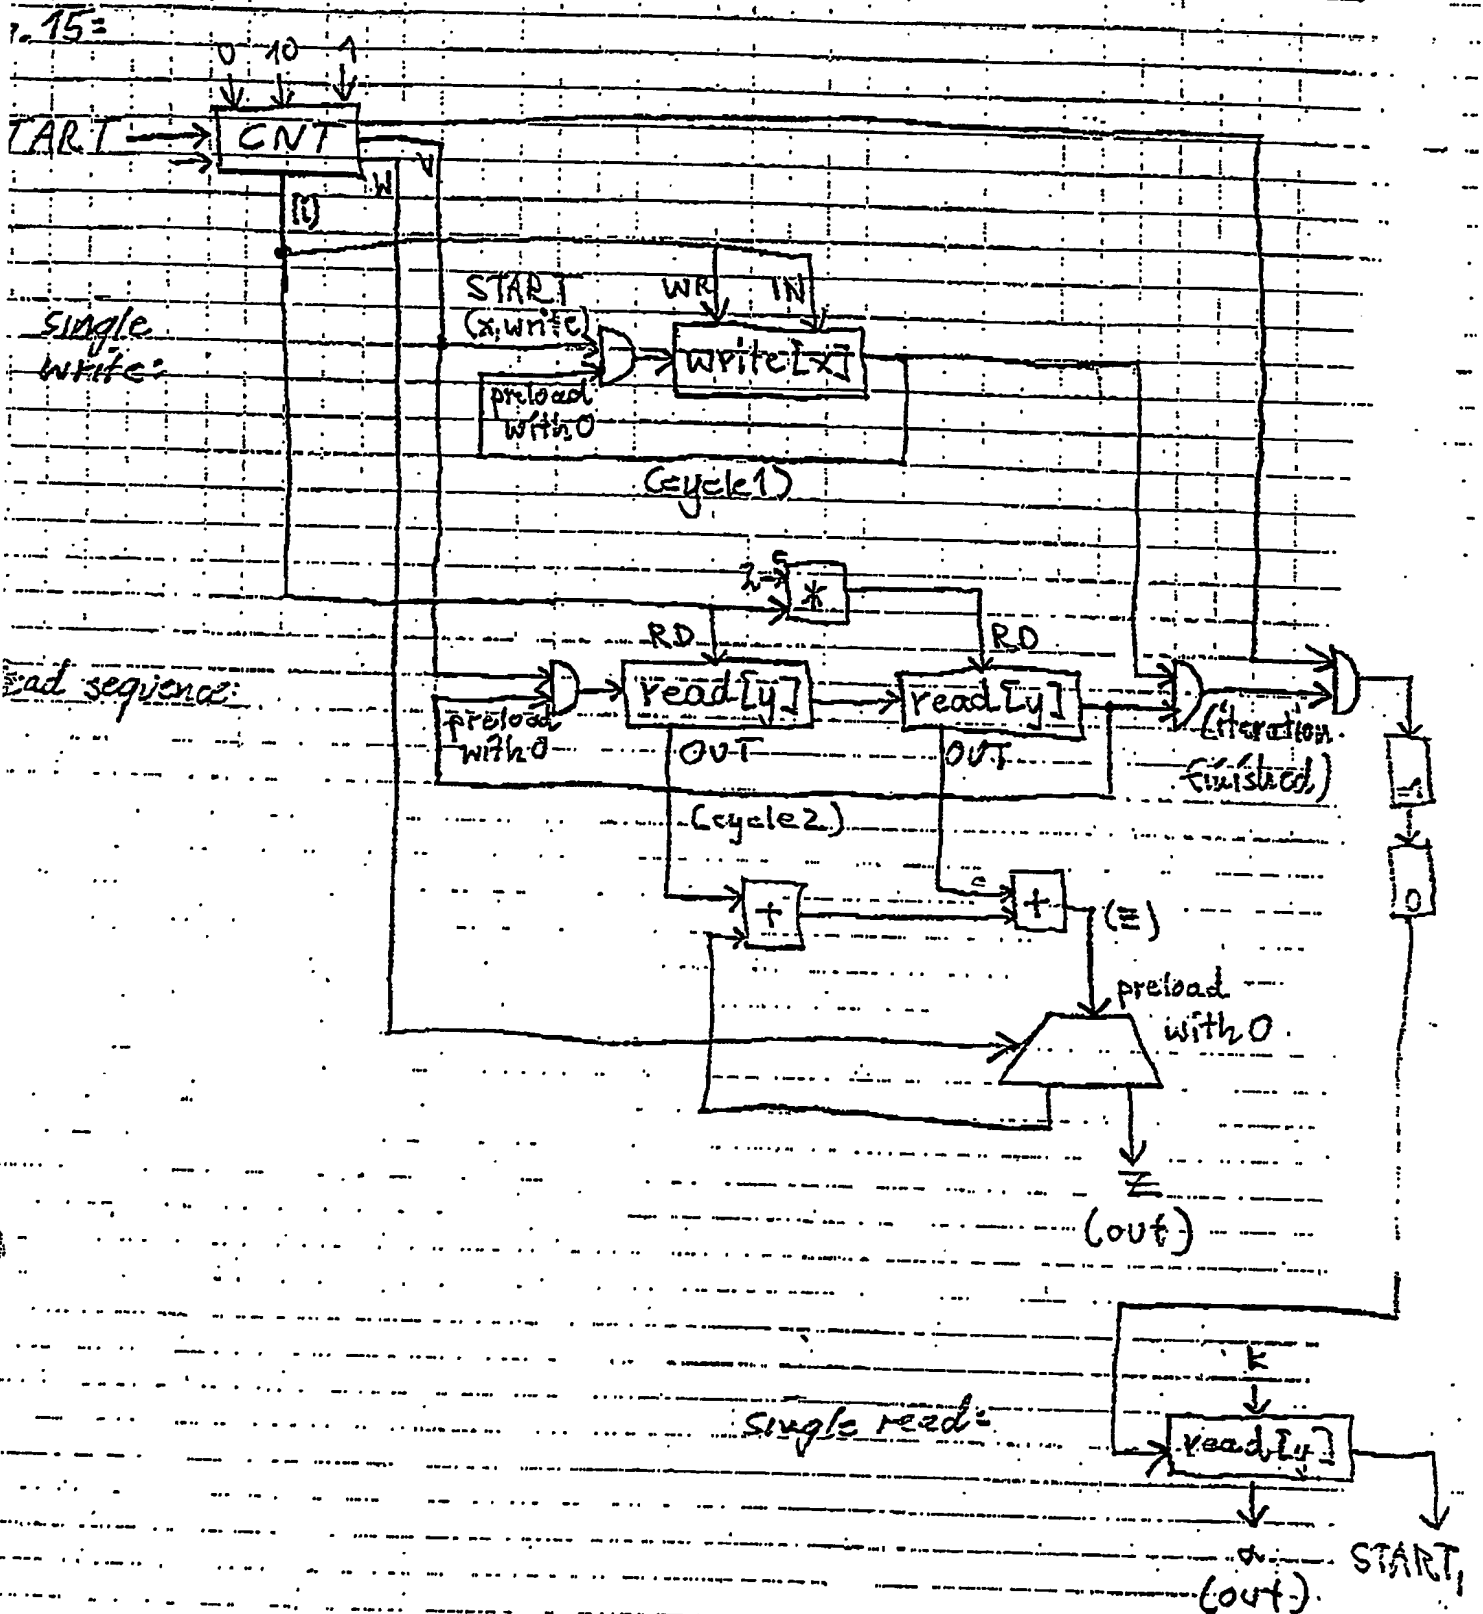 . 15:
0 10 1
TART CNT
W V
[i]
START WR IN
(x, write)
single
write:
write[x]
preload
with 0
(cycle1)
2 *
RD RD
ead sequence:
read[y] read[y]
preload
with 0 OUT OUT
(iteration
finished)
(cycle2)
=1
0
+ + (=)
preload
with 0
Z
(out)
k
single read:
read[y]
START,
(out)